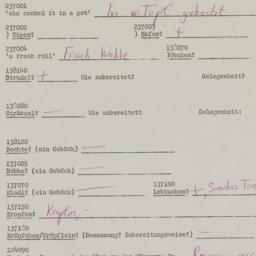 237001
'she cooked it in a pot' In a Topf gekocht
237002 237003
) Tipen? ) Hafen? +
237004 136070
'a fresh roll' Frisch Wekle )Wecken?
138140
Strudel? + Wie zubereitet? Gelegenheit?
136080
Striezel? — Wie zubereitet? Gelegenheit:
138120
Bochte? (ein Gebäck) —
233005
Bobbe? (ein Gebäck) —
137070 137100
Kindl? (ein Gebäck) — Lebkuchen? +
137150
Krapfen? Krapfn —
137160
Kräpfchen/Kräpflein? (Benennung? Zubereitungsweise?) —
104090